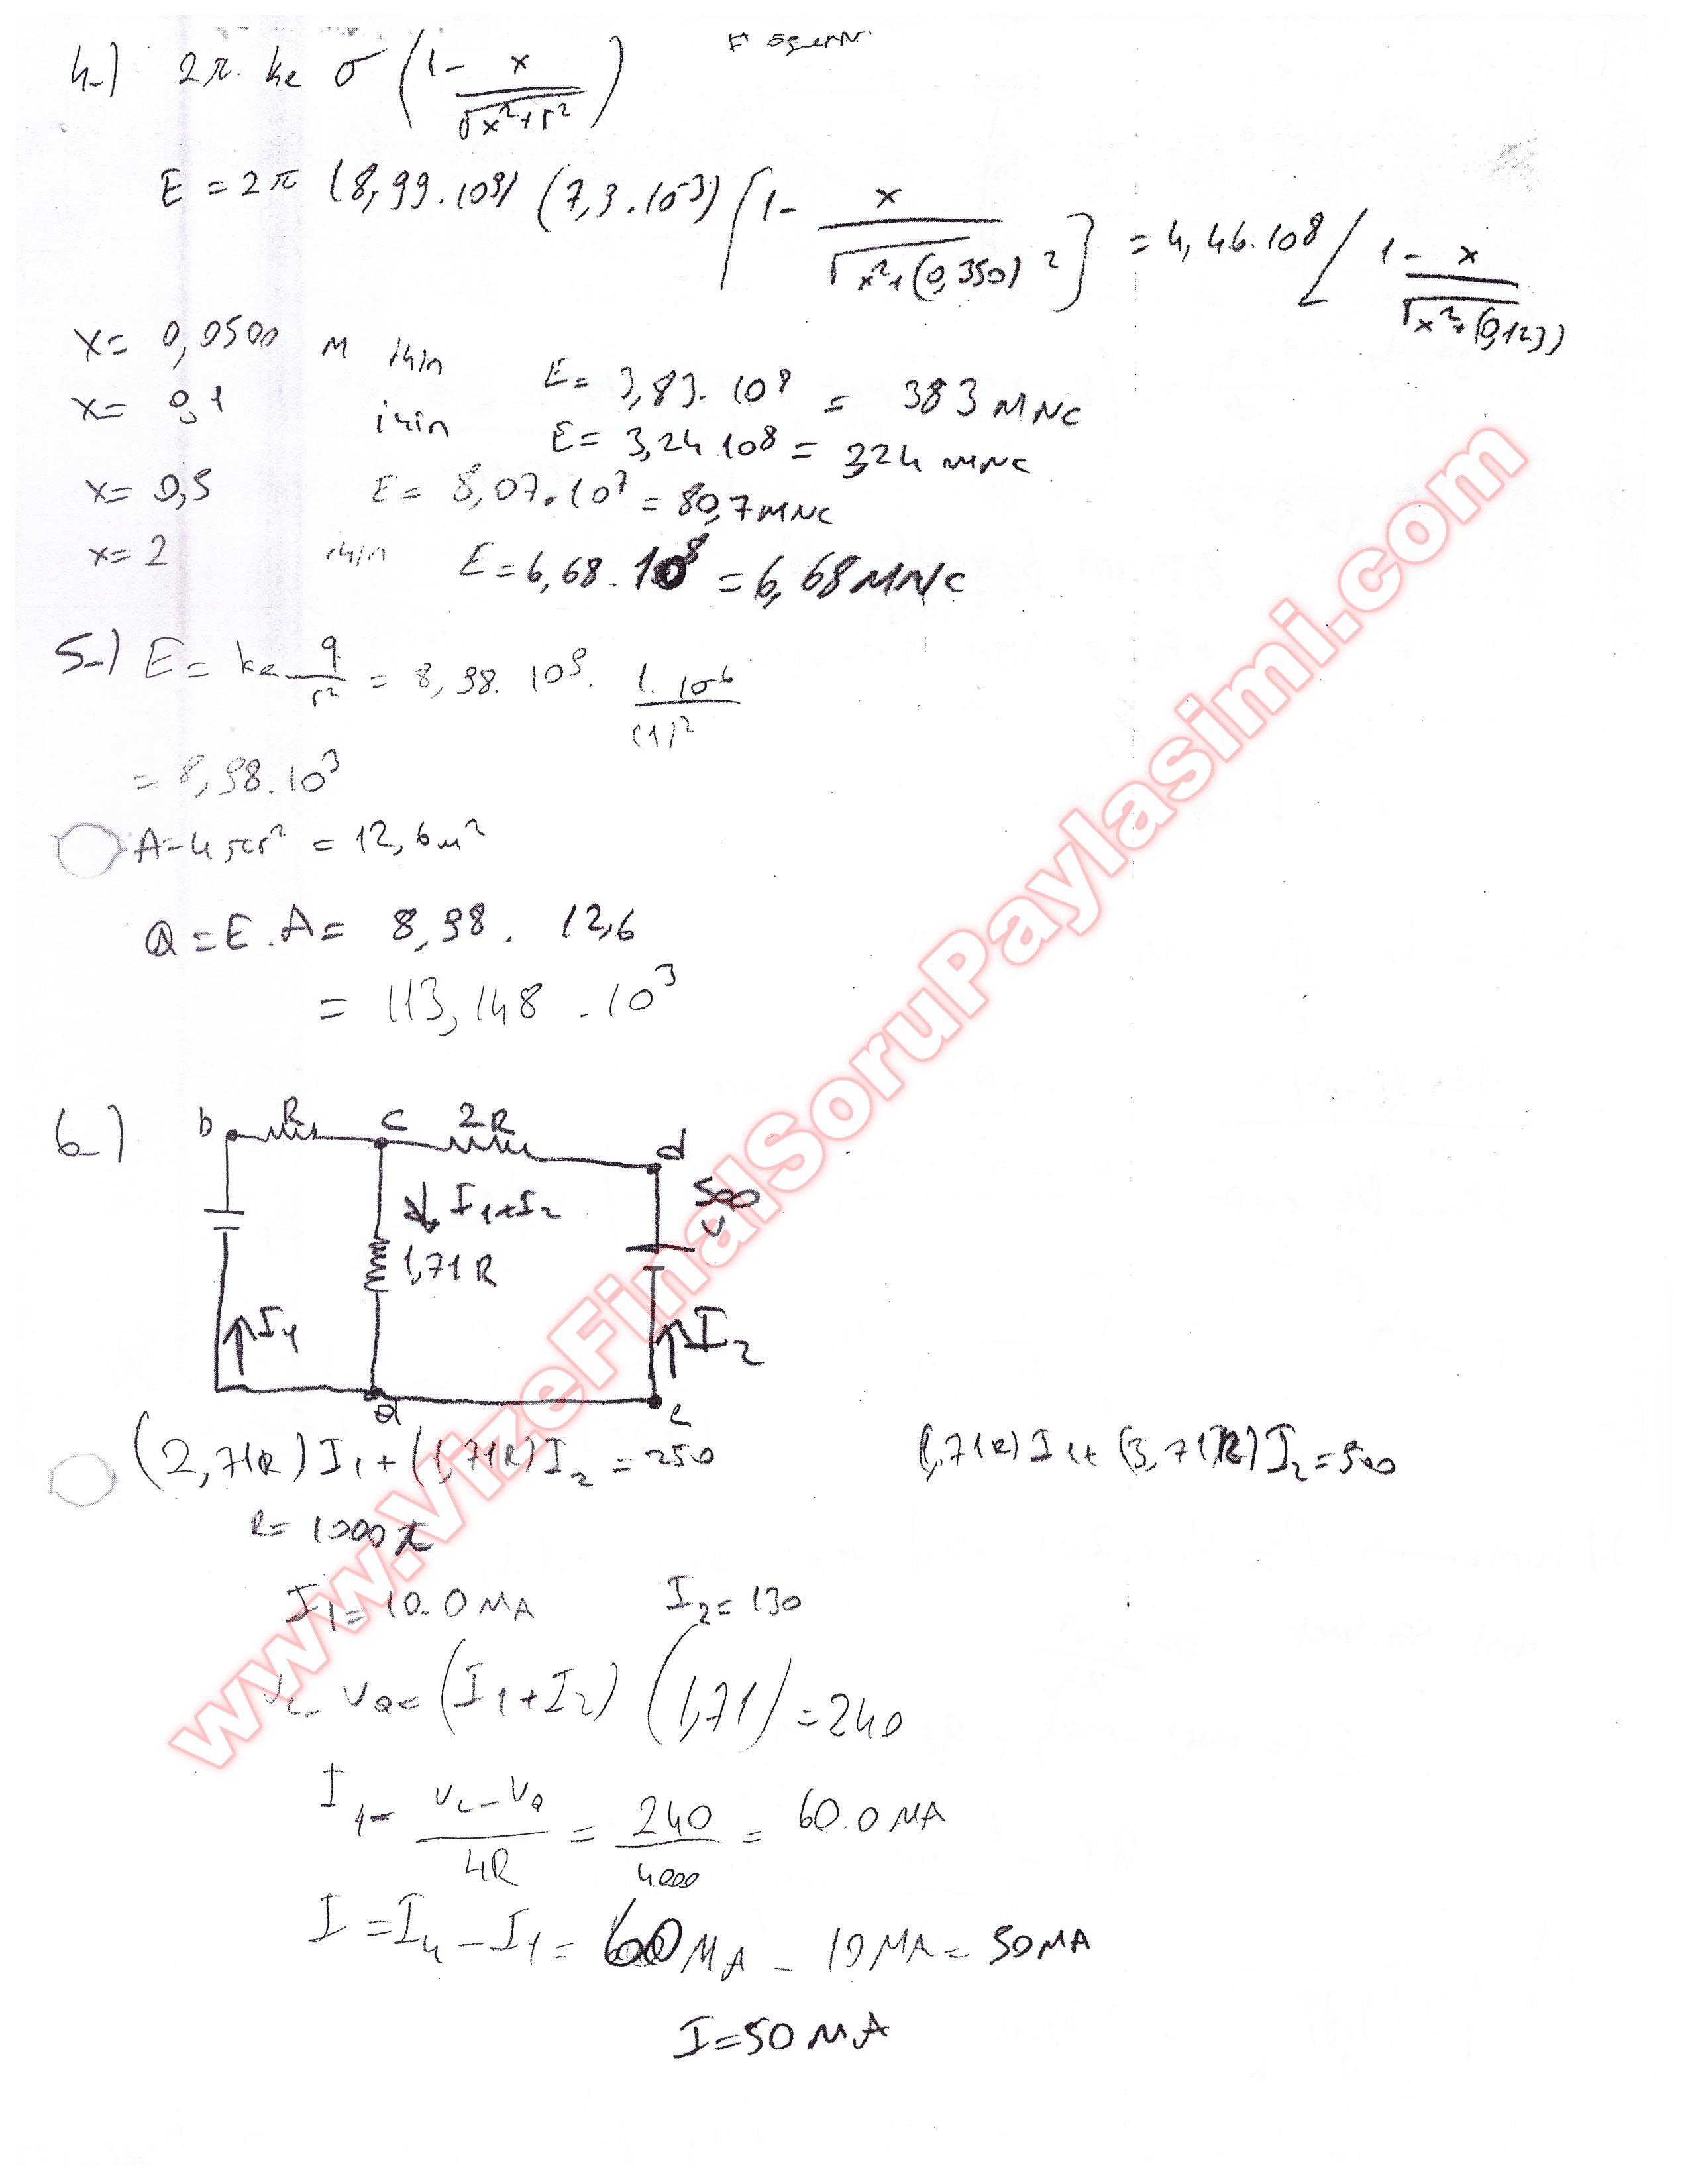 4-) 2π. ke σ (1 - x / √x²+r²)
E = 2π (8,99.10⁹) (7,9.10⁻³) [1 - x / √x²+(0,350)²] = 4,46.10⁸ [1 - x / √x²+(0,123)]
x= 0,0500 M için E= 3,83.10⁸ = 383 MNC
x= 0,1 için E= 3,24.10⁸ = 324 MNC
x= 0,5 E= 8,07.10⁷ = 80,7 MNC
x= 2 için E=6,68.10⁸ = 6,68 MNC
5-) E= ke q/r² = 8,98.10⁹. 1.10⁻⁶/(1)²
= 8,98.10³
A=4πr² = 12,6 m²
Q = E.A = 8,98. 12,6
= 113,148 .10³
6-) b R c 2R d
I₁+I₂ 500 V
1,71R
I₁ I₂
a e
(2,71R)I₁+(1,71R)I₂=250 (1,71R)I₁+(3,71R)I₂=500
R= 1000
I₁=10.0 MA I₂=130
Vc-Va=(I₁+I₂) (1,71)=240
I₄= Vc-Va / 4R = 240 / 4000 = 60.0 MA
I = I₄ - I₁ = 60 MA - 10 MA = 50 MA
I=50 MA
www.VizeFinalSoruPaylasimi.com